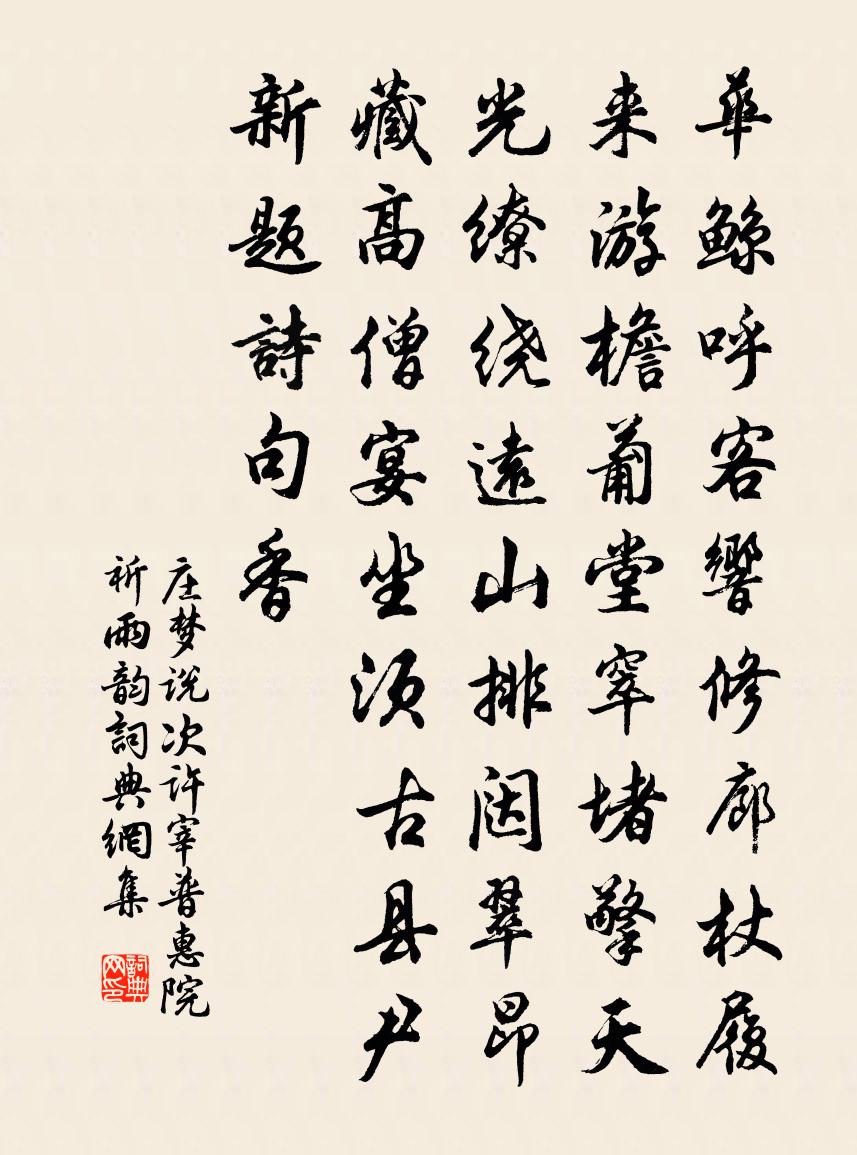 華鲸呼客響修廊杖履
来游檐葡堂窣堵擎天
光缭绕遠山排闼翠昂
藏高僧宴坐须古县尹
新题詩句香
庄梦说次许宰普惠院
祈雨韵詞典網集
詞典网印